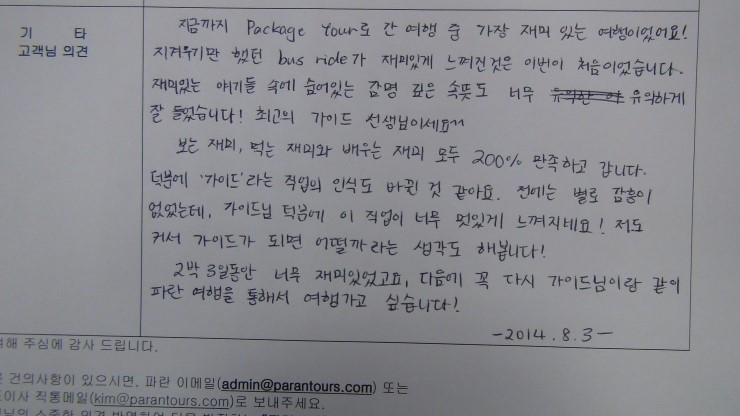 기 타
고객님 의견
지금까지 Package Tour로 간 여행 중 가장 재미 있는 여행이었어요!
지겨웁기만 했던 bus ride가 재미있게 느껴진것은 이번이 처음이었습니다.
재미있는 얘기들 속에 숨어있는 감명 깊은 속뜻도 너무 유익하게
잘 들었습니다! 최고의 가이드 선생님이세요^^
보는 재미, 먹는 재미와 배우는 재미 모두 200% 만족하고 갑니다.
덕분에 '가이드'라는 직업의 인식도 바뀐 것 같아요. 전에는 별로 감흥이
없었는데, 가이드님 덕분에 이 직업이 너무 멋있게 느껴지네요! 저도
커서 가이드가 되면 어떨까라는 생각도 해봅니다!
2박 3일동안 너무 재미있었고요, 다음에 꼭 다시 가이드님이랑 같이
파란 여행을 통해서 여행가고 싶습니다!
-2014.8.3-
해 주심에 감사 드립니다.
건의사항이 있으시면, 파란 이메일(admin@parantours.com) 또는
이사 직통메일(kim@parantours.com)로 보내주세요.